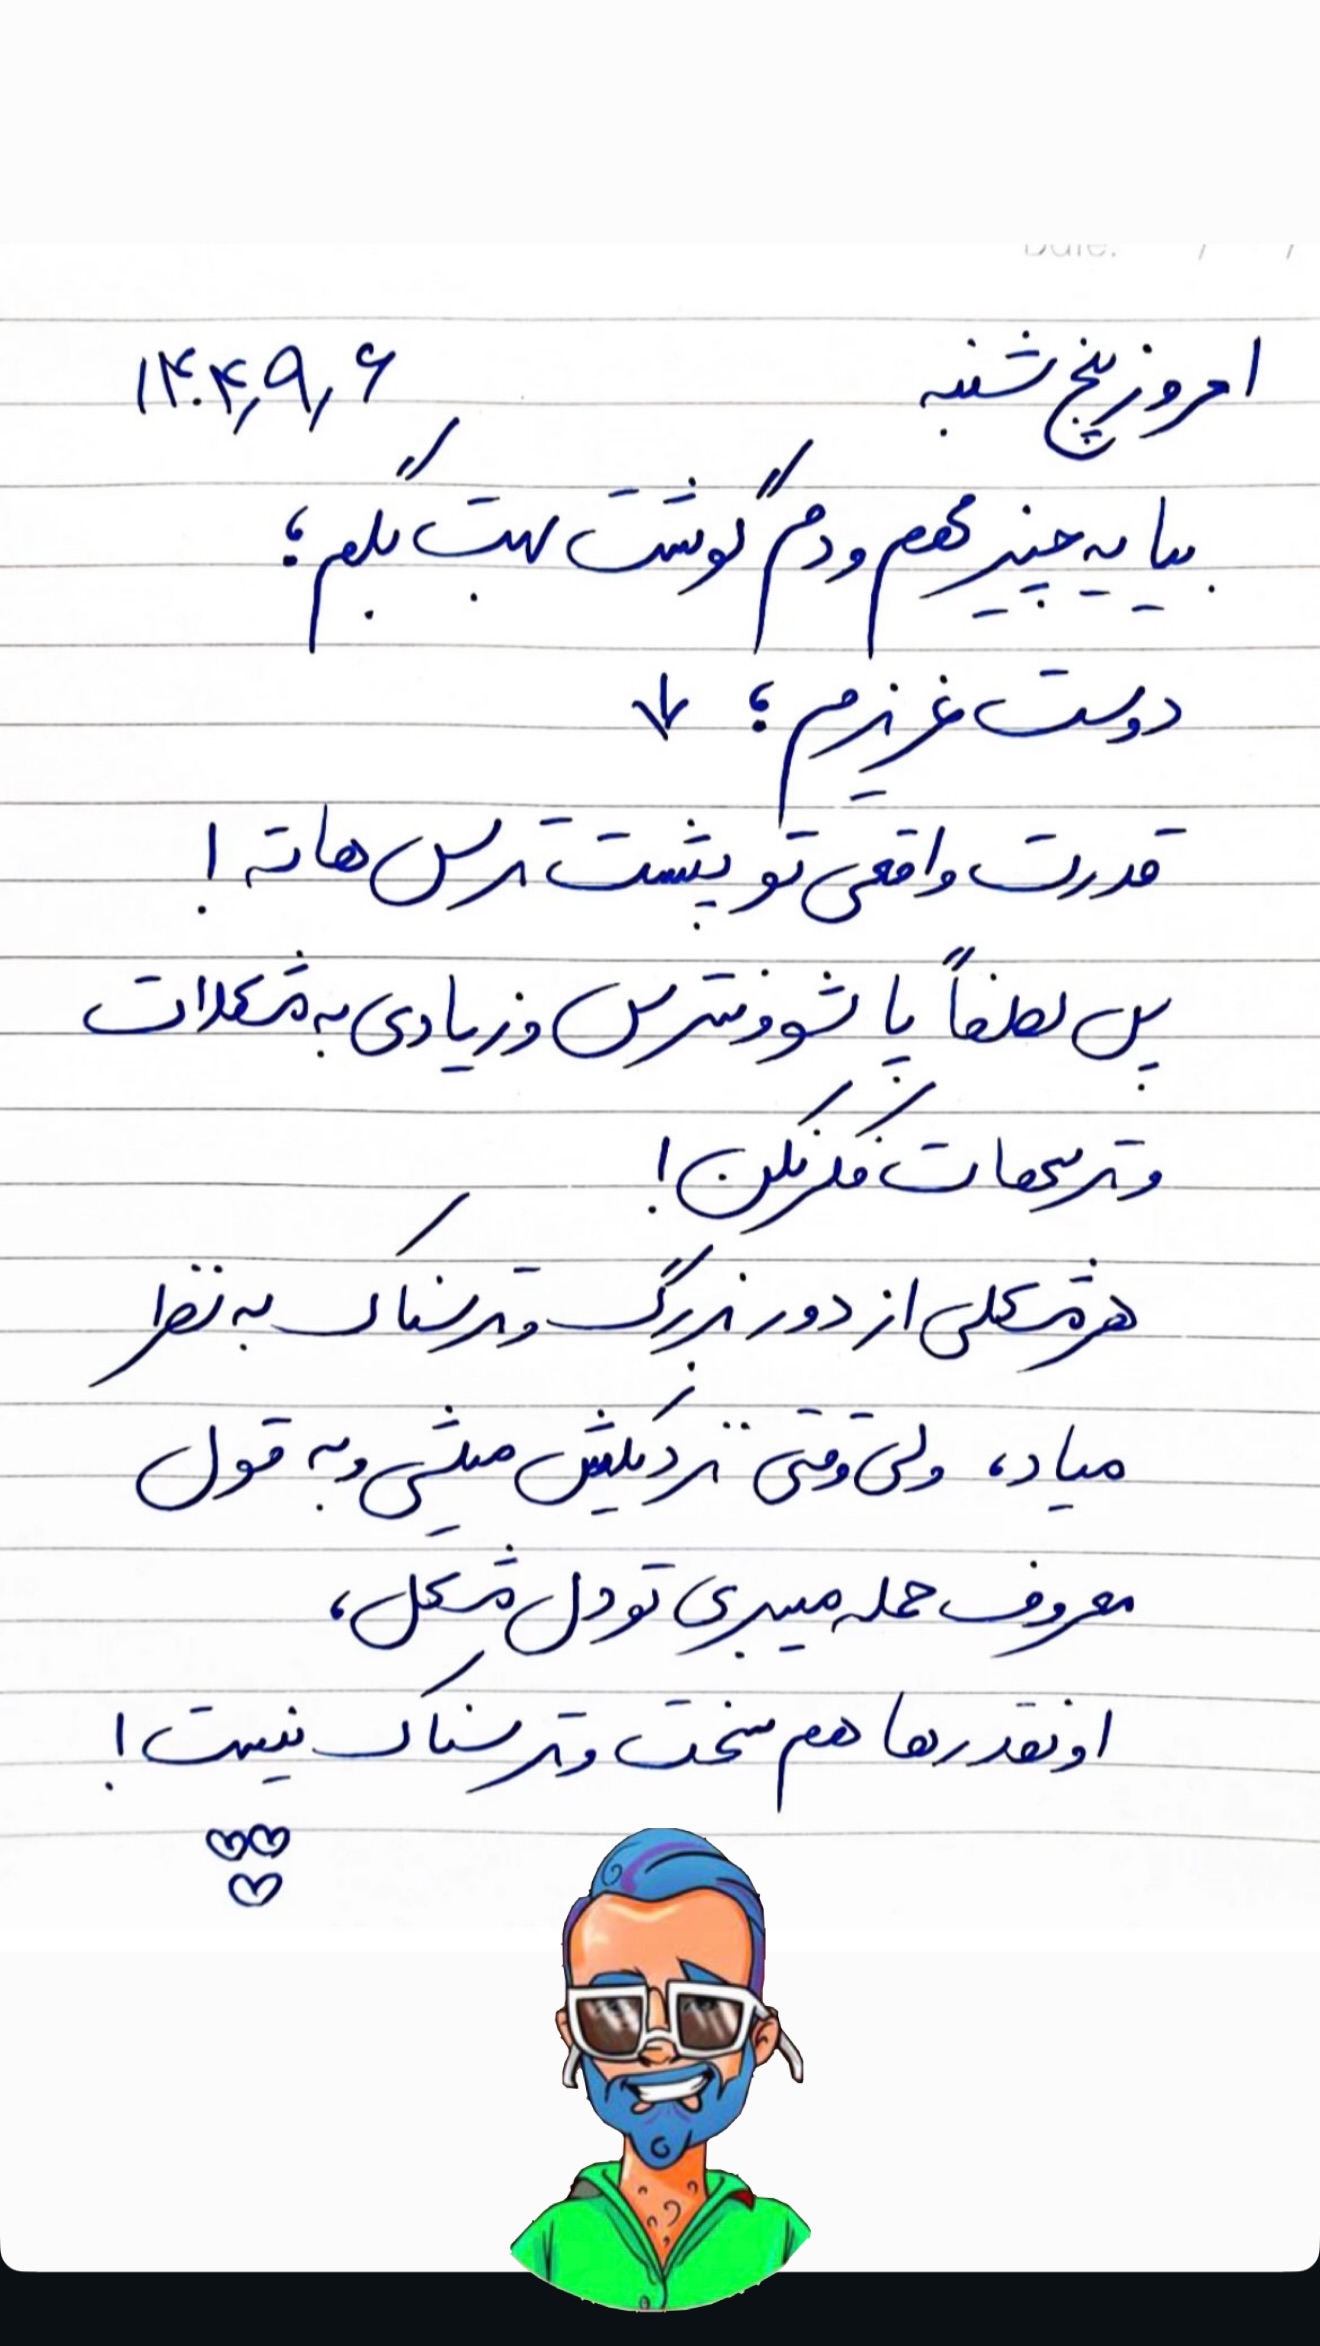 Date: / /
امروز پنج شنبه ۱۴۰۴,۹,۶
بیا یه چیز مهم و دم گوشت بهت بگم؛
دوست عزیزم؛ ↓
قدرت واقعی تو پشت ترس هاته!
پس لطفاً پاشو و نترس و زیادی به مشکلات
و ترسهات فکر نکن!
هر مشکلی از دور بزرگ و ترسناک به نظر
میاد، ولی وقتی نزدیکش میشی و به قول
معروف حمله میبری تو دل مشکل،
اونقدرها هم سخت و ترسناک نیست!